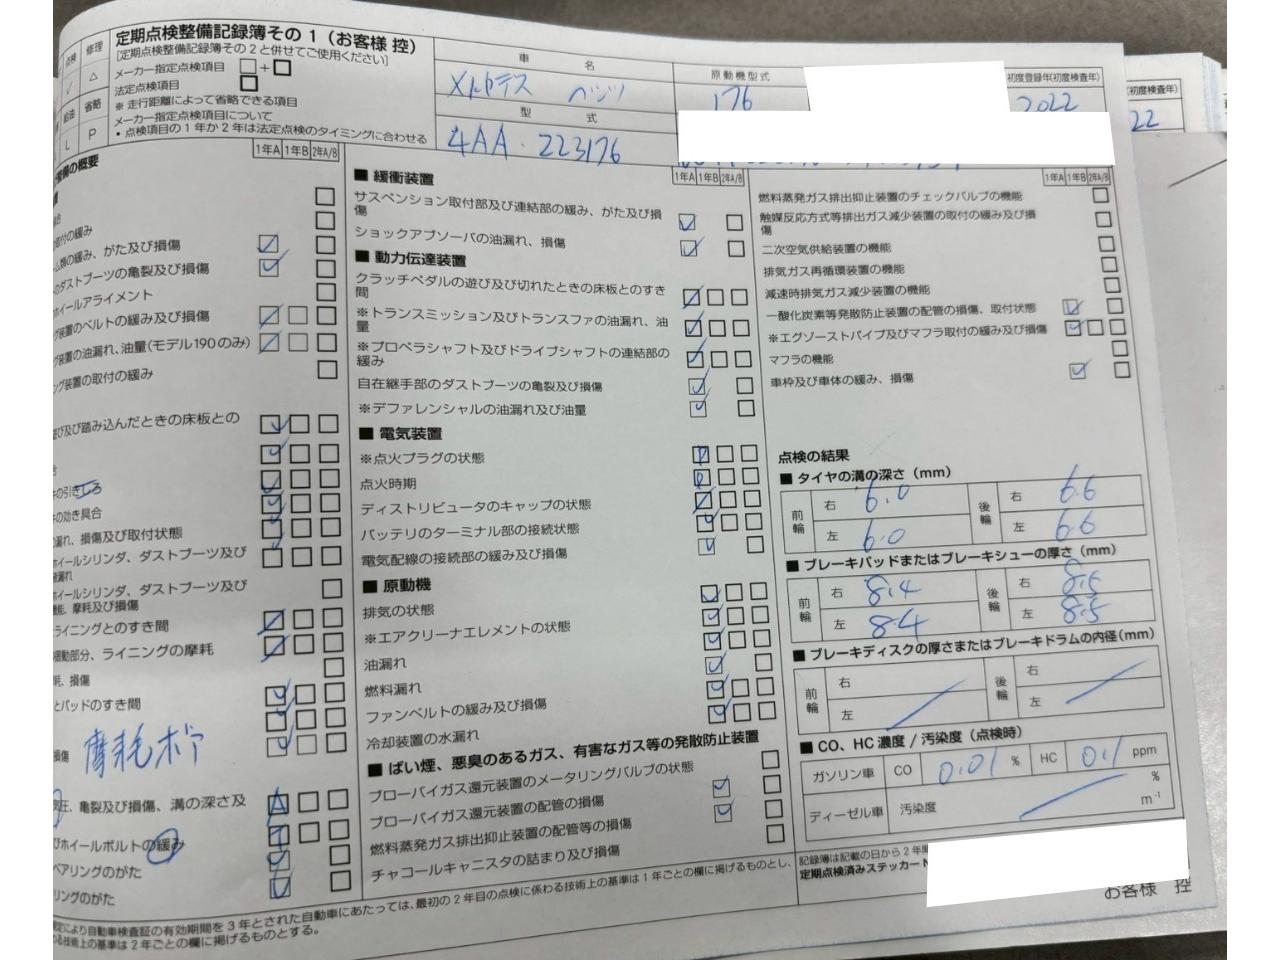 定期点検整備記録簿その1(お客様 控)
[定期点検整備記録簿その2と併せてご使用ください]
メーカー指定点検項目 □+□
法定点検項目
※ 走行距離によって省略できる項目
メーカー指定点検項目について
・点検項目の1年か2年は法定点検のタイミングに合わせる
点検
修理
△
給油
省略
L
P
車 名
メルセデス ベンツ
原動機型式
176
初度登録年(初度検査年)
2022
型 式
4AA-223176
(初度検査年)
22
整備の概要
1年A 1年B 2年A/B
取付の緩み
の緩み、がた及び損傷
のダストブーツの亀裂及び損傷
ホイールアライメント
装置のベルトの緩み及び損傷
装置の油漏れ、油量(モデル190のみ)
グ装置の取付の緩み
遊び及び踏み込んだときの床板との
の引きしろ
の効き具合
漏れ、損傷及び取付状態
ホイールシリンダ、ダストブーツ及び
液漏れ
ホイールシリンダ、ダストブーツ及び
機能、摩耗及び損傷
ライニングとのすき間
摺動部分、ライニングの摩耗
耗、損傷
とパッドのすき間
損傷
摩耗ボア
圧、亀裂及び損傷、溝の深さ及
びホイールボルトの緩み
ベアリングのがた
リングのがた
1年A 1年B 2年A/B
■ 緩衝装置
サスペンション取付部及び連結部の緩み、がた及び損
傷
ショックアブソーバの油漏れ、損傷
■ 動力伝達装置
クラッチペダルの遊び及び切れたときの床板とのすき
間
※トランスミッション及びトランスファの油漏れ、油
量
※プロペラシャフト及びドライブシャフトの連結部の
緩み
自在継手部のダストブーツの亀裂及び損傷
※デファレンシャルの油漏れ及び油量
■ 電気装置
※点火プラグの状態
P
点火時期
P
ディストリビュータのキャップの状態
バッテリのターミナル部の接続状態
電気配線の接続部の緩み及び損傷
■ 原動機
排気の状態
※エアクリーナエレメントの状態
油漏れ
燃料漏れ
ファンベルトの緩み及び損傷
冷却装置の水漏れ
■ ばい煙、悪臭のあるガス、有害なガス等の発散防止装置
ブローバイガス還元装置のメータリングバルブの状態
ブローバイガス還元装置の配管の損傷
燃料蒸発ガス排出抑止装置の配管等の損傷
チャコールキャニスタの詰まり及び損傷
1年A 1年B 2年A/B
燃料蒸発ガス排出抑止装置のチェックバルブの機能
触媒反応方式等排出ガス減少装置の取付の緩み及び損
傷
二次空気供給装置の機能
排気ガス再循環装置の機能
減速時排気ガス減少装置の機能
一酸化炭素等発散防止装置の配管の損傷、取付状態
※エグゾーストパイプ及びマフラ取付の緩み及び損傷
マフラの機能
車枠及び車体の緩み、損傷
点検の結果
■ タイヤの溝の深さ(mm)
前輪 右 6.0 後輪 右 6.6
左 6.0 左 6.6
■ ブレーキパッドまたはブレーキシューの厚さ(mm)
前輪 右 8.4 後輪 右 8.5
左 8.4 左 8.5
■ ブレーキディスクの厚さまたはブレーキドラムの内径(mm)
前輪 右 後輪 右
左 左
■ CO、HC 濃度 / 汚染度(点検時)
ガソリン車 CO 0.01 % HC 0.1 ppm
ディーゼル車 汚染度 %
m-1
記録簿は記載の日から2年間
定期点検済みステッカー
お客様 控
規定により自動車検査証の有効期間を3年とされた自動車にあたっては、最初の2年目の点検に係わる技術上の基準は1年ごとの欄に掲げるものとし、
る技術上の基準は2年ごとの欄に掲げるものとする。